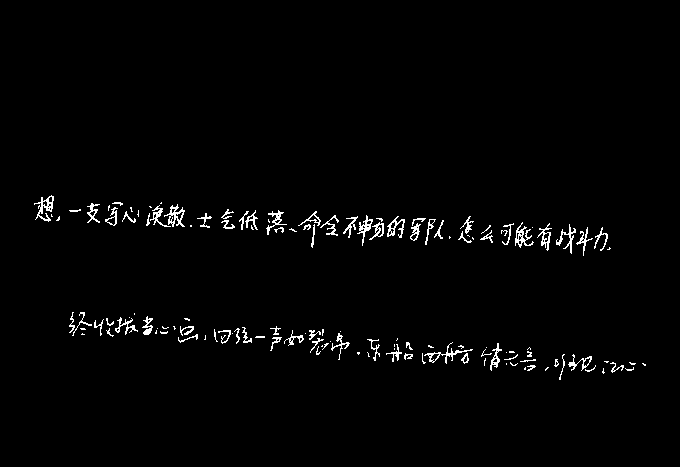 想,一支军心涣散、士气低落、命令不畅的军队,怎么可能有战斗力.
终收拨当心画,四弦一声如裂帛.东船西舫悄无言,唯见江心